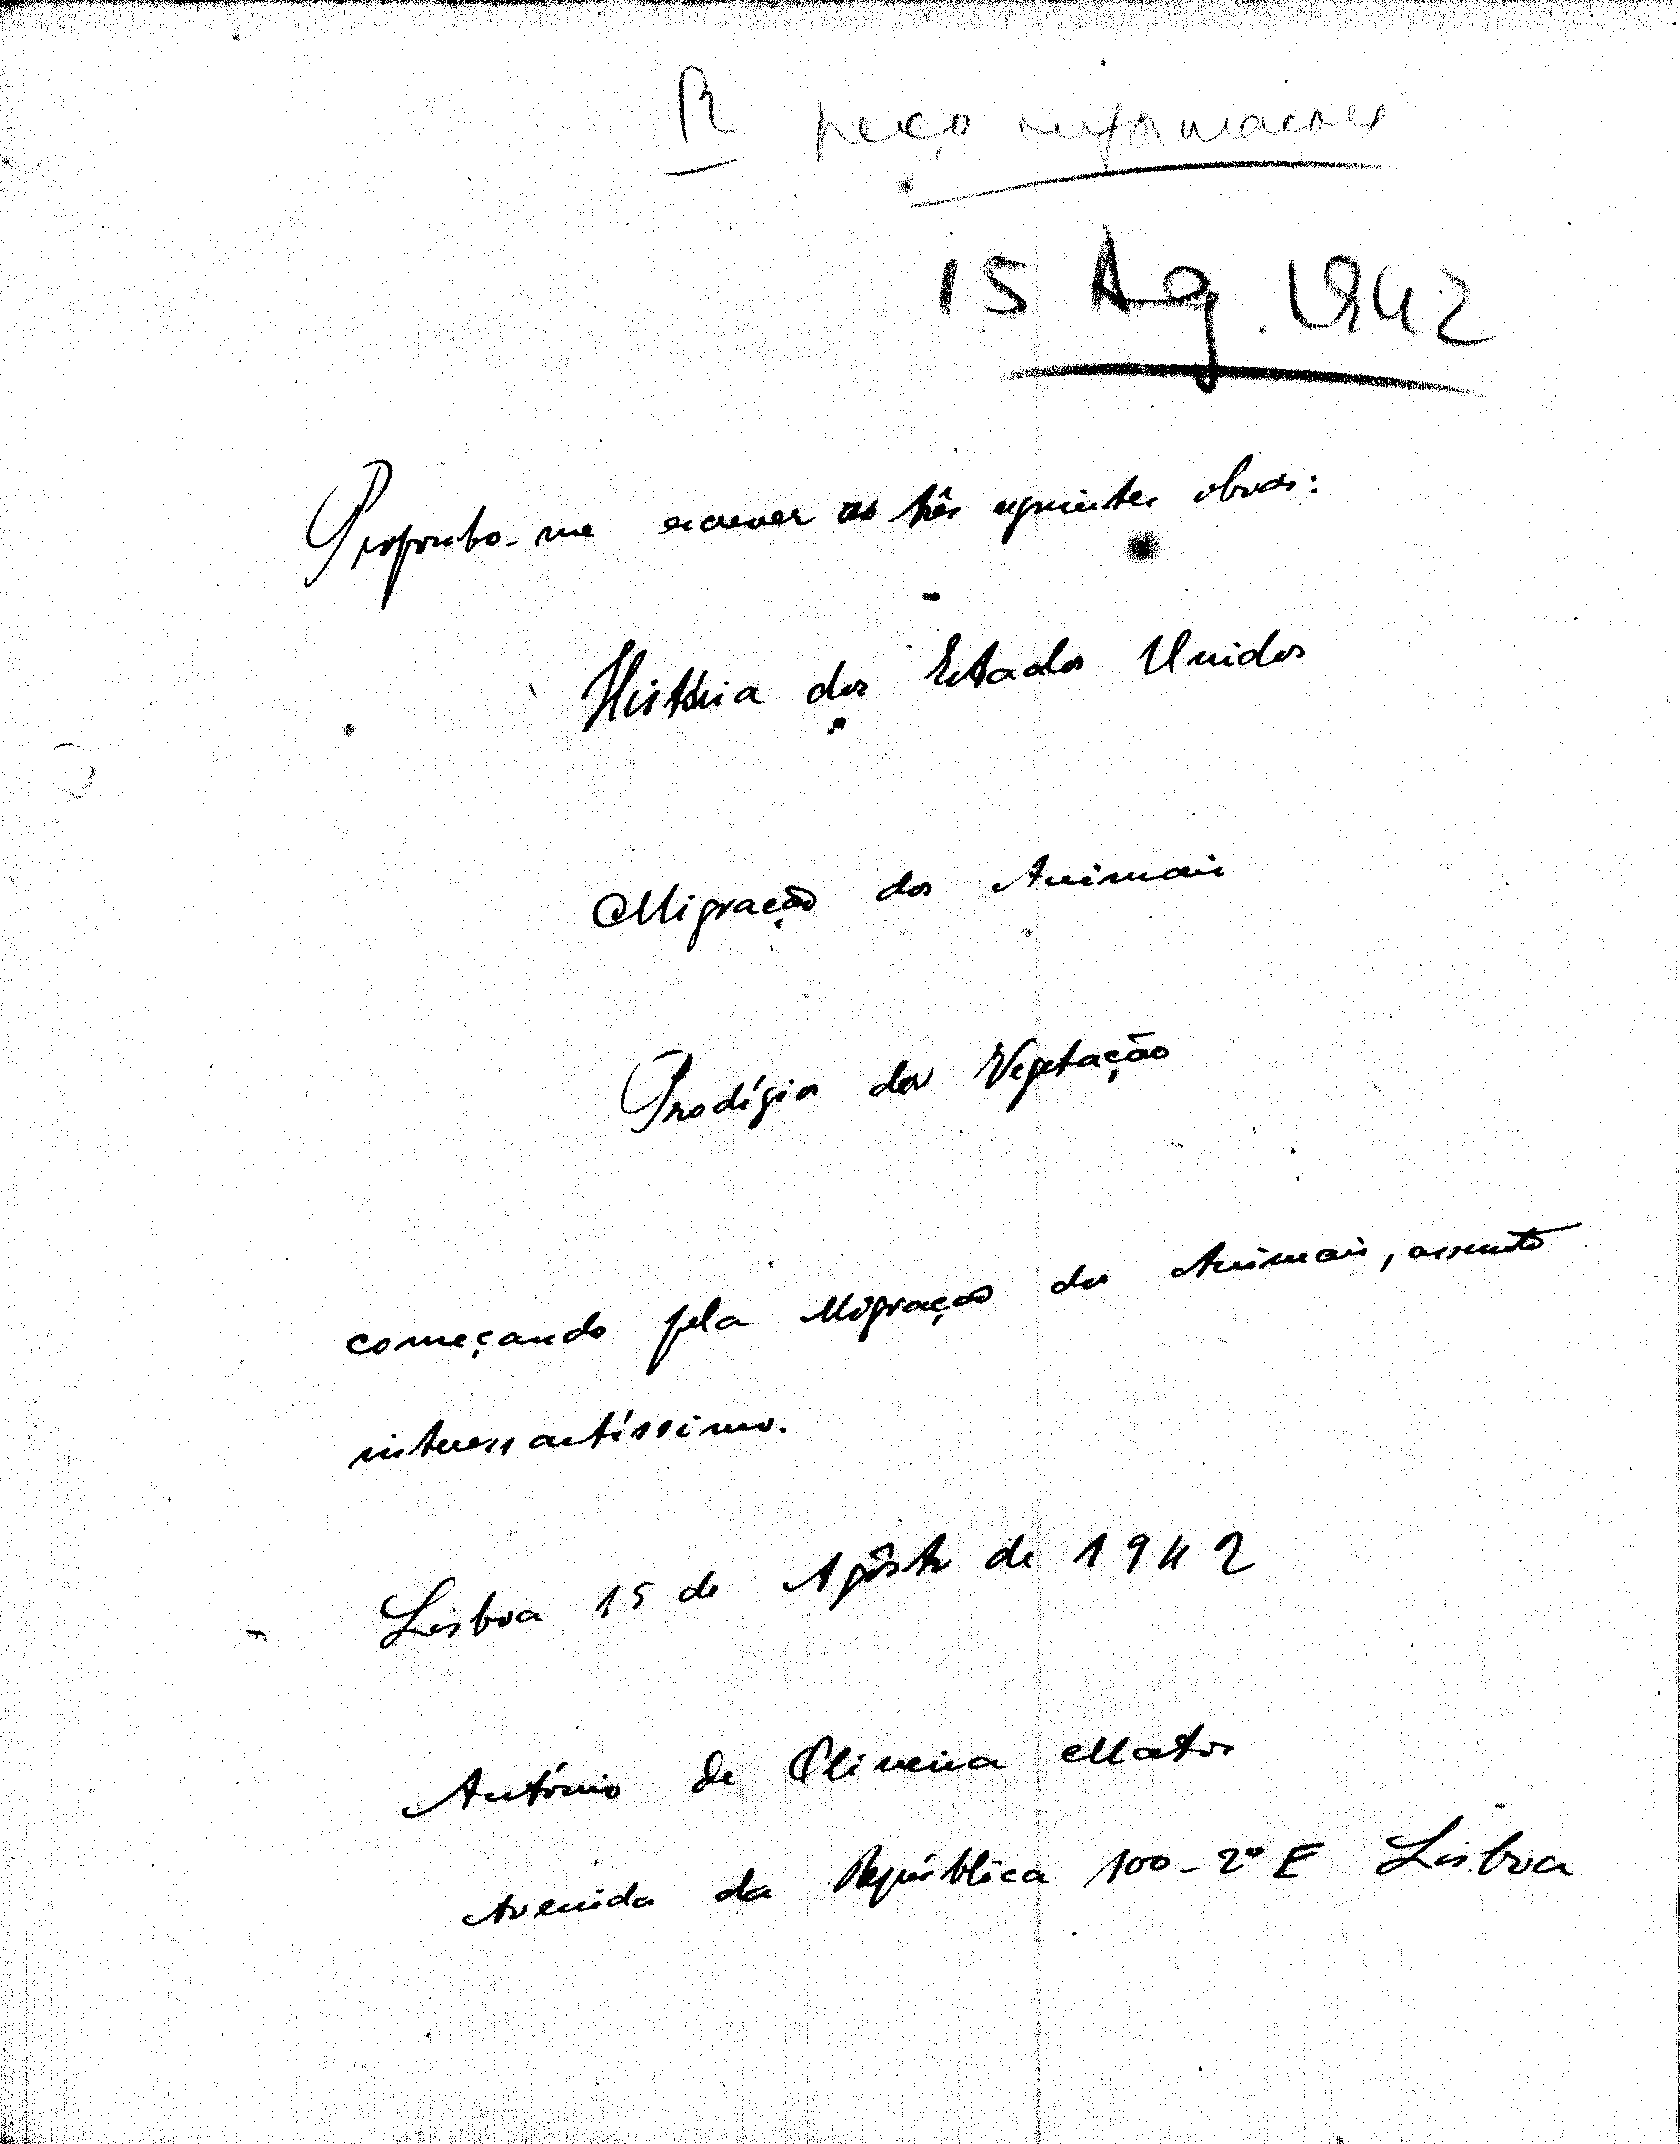 R peço informações
15 Ag. 1942
Proponho-me escrever as três seguintes obras:
História dos Estados Unidos
Migração dos Animais
Prodígio da Vegetação
começando pela Migração dos Animais, assunto
interessantíssimo.
Lisboa 15 de Agôsto de 1942
António de Oliveira Matos
Avenida da República 100-2º E Lisboa